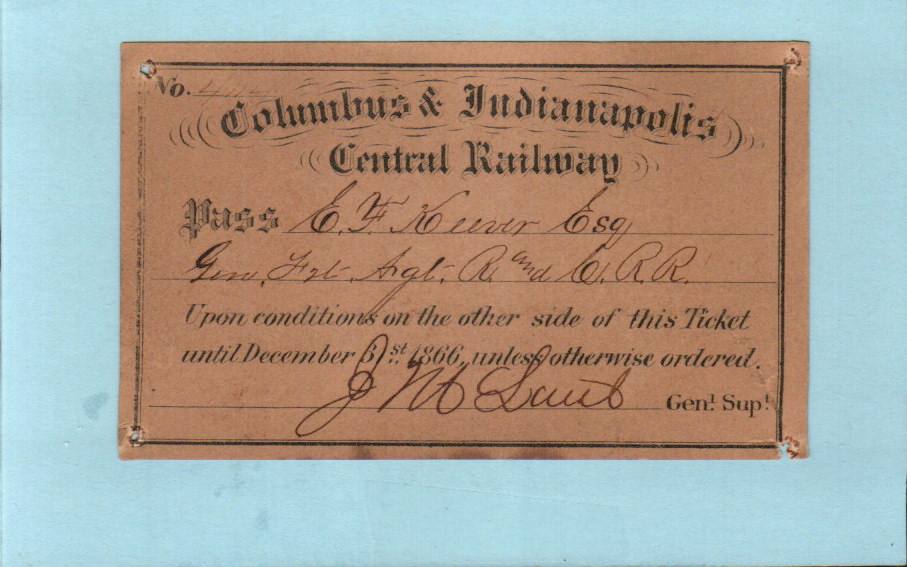 No.
Columbus & Indianapolis
Central Railway
Pass E. F. Keever Esq
Gen. Frt. Agt. R. and C. R. R.
Upon conditions on the other side of this Ticket
until December 31st 1866, unless otherwise ordered.
J M Genl. Supt.